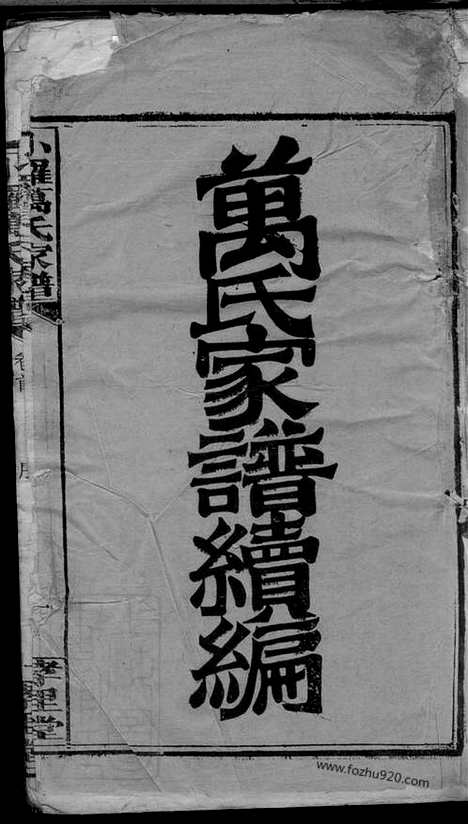 萬氏家譜續編
小羅萬氏家譜
卷首
www.fozhu920.com